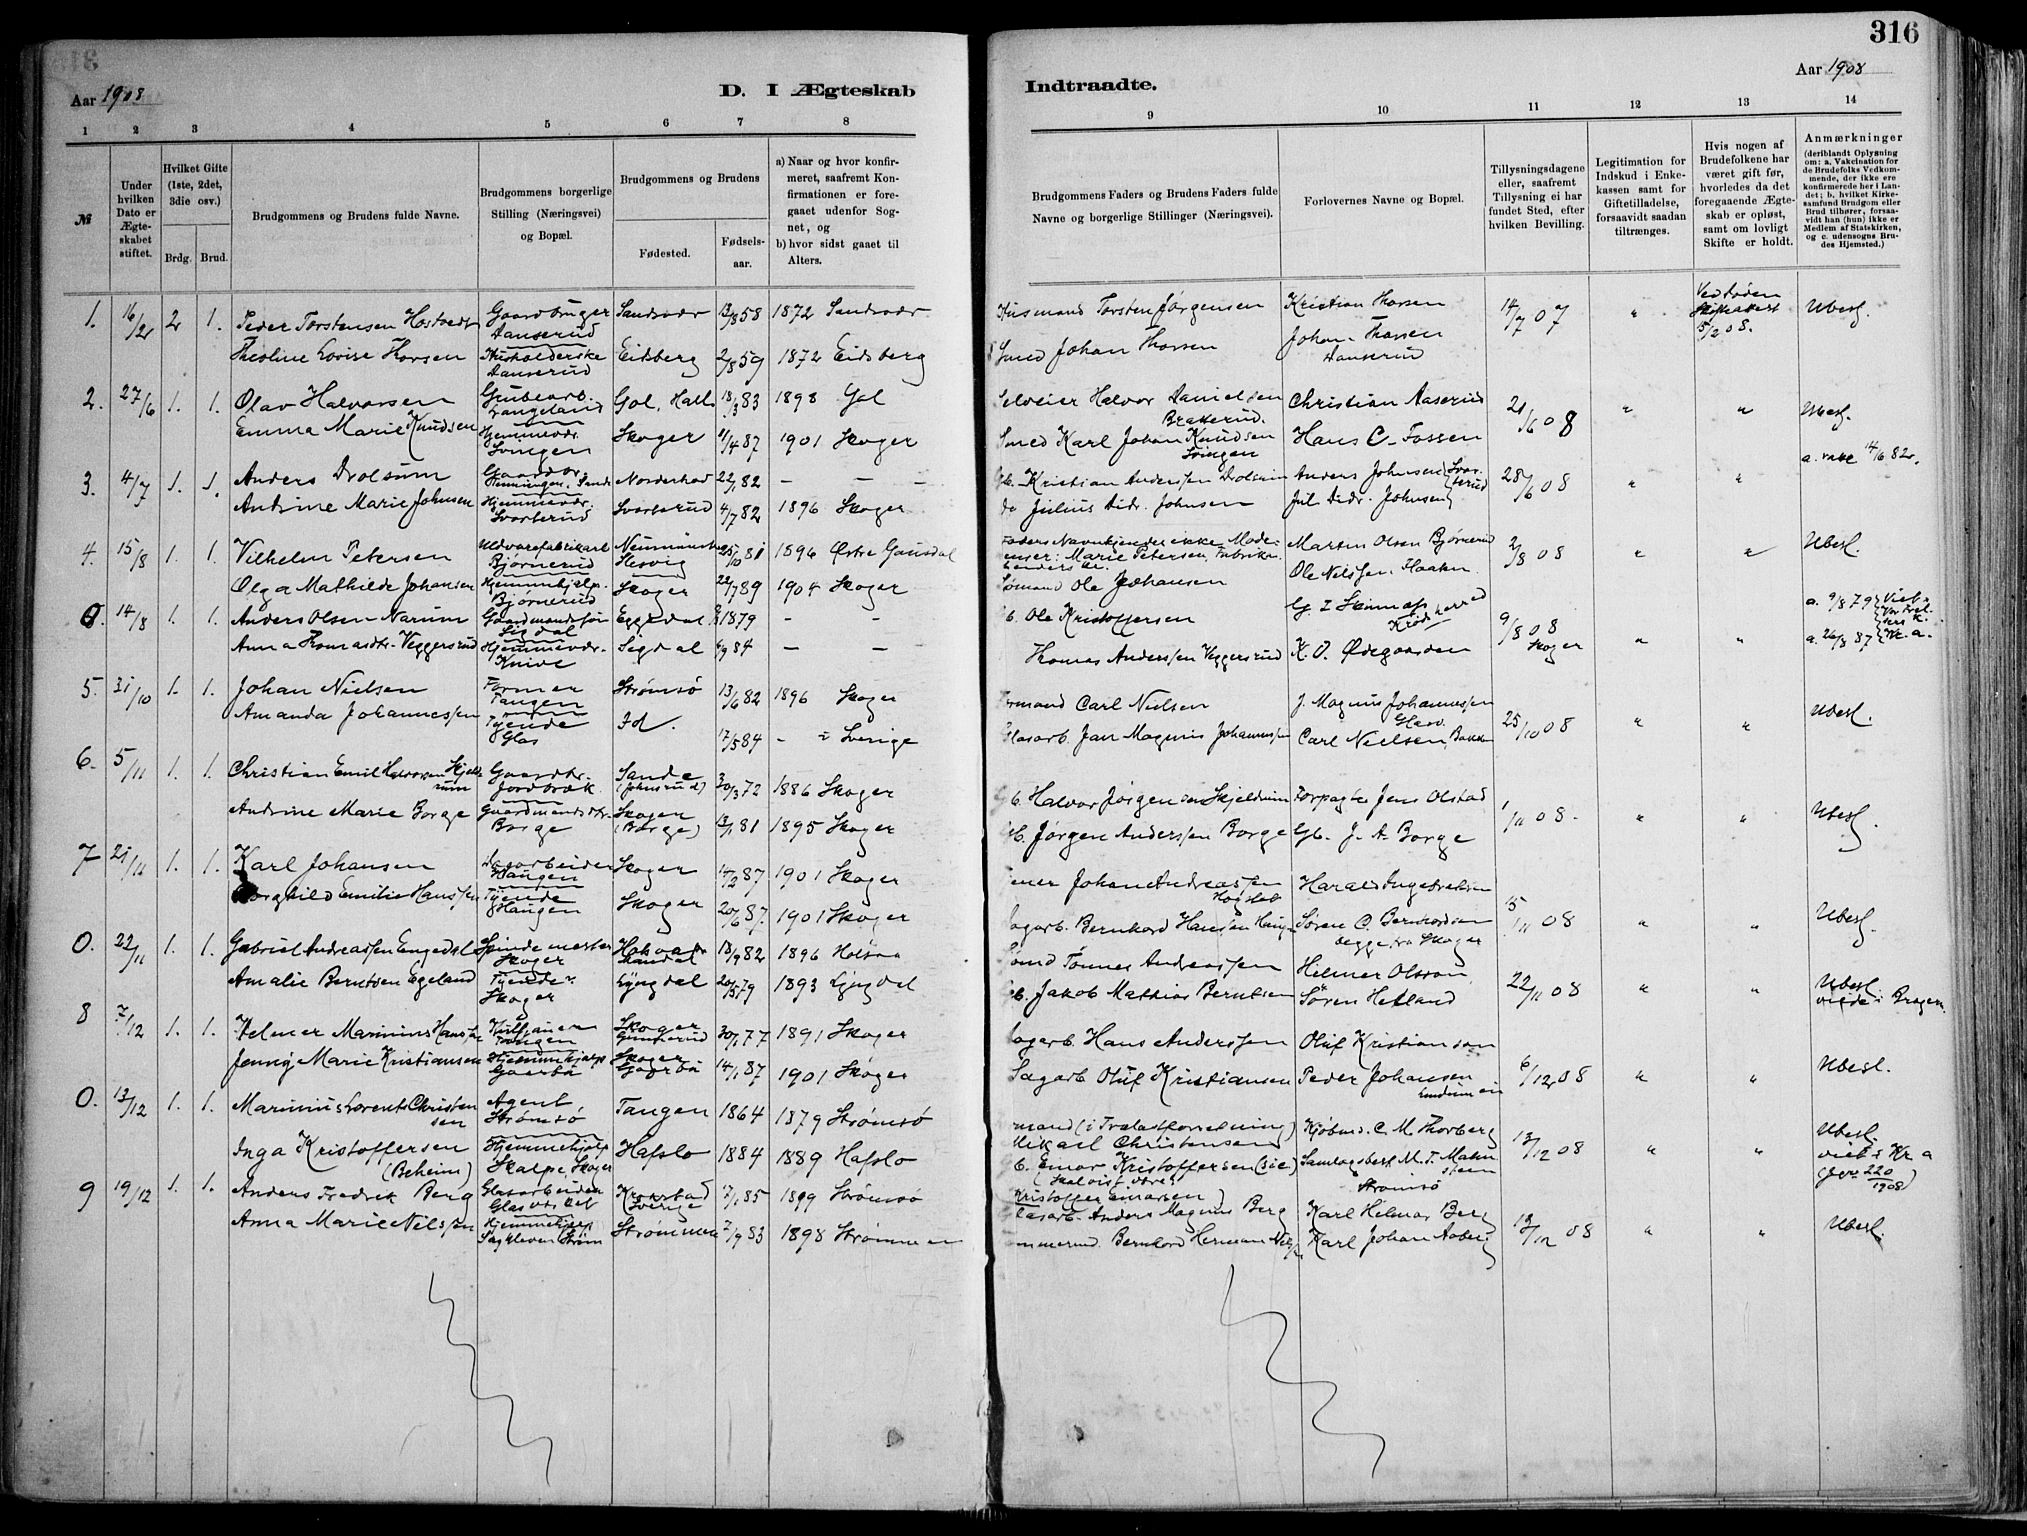 316
Aar 1908
D. I Ægteskab
Indtraadte.
Aar 1908
1 2 3 4 5 6 7 8 9 10 11 12 13 14
№
Under hvilken Dato er Ægte-skabet stiftet.
Hvilket Gifte (1ste, 2det, 3die osv.)
Brdg. Brud.
Brudgommens og Brudens fulde Navne.
Brudgommens borgerlige Stilling (Næringsvei) og Bopæl.
Brudgommens og Brudens
Fødested.
Fødsels-aar.
a) Naar og hvor konfir-meret, saafremt Kon-firmationen er fore-gaaet udenfor Sog-net, og
b) hvor sidst gaaet til Alters.
Brudgommens Faders og Brudens Faders fulde Navne og borgerlige Stillinger (Næringsvei).
Forlovernes Navne og Bopæl.
Tillysningsdagene eller, saafremt Tillysning ei har fundet Sted, efter hvilken Bevilling.
Legitimation for Indskud i Enke-kassen samt for Giftetilladelse, forsaavidt saadan tiltrænges.
Hvis nogen af Brudefolkene har været gift før, hvorledes da det foregaaende Ægte-skab er opløst, samt om lovligt Skifte er holdt.
Anmærkninger
(deriblandt Oplysning om: a. Vakcination for de Brudefolks Vedkom-mende, der ikke ere konfirmerede her i Lan-det; b. hvilket Kirke-samfund Brudgom eller Brud tilhører, forsaa-vidt han (hun) ikke er Medlem af Statskirken, og c. udensogns Bru-des Hjemsted.)
1. 16/2 2 1. Peder Torstensen Hostvedt Gaardbruger Danserud Sandsvær 12/8 58 1872 Sandsvær Husmand Torsten Jørgensen Kristian Thorsen 14/7 07 " Ved Døden Skifteattest 15/2 08. Ubesl.
Theoline Lovise Thorsen Husholderske Danserud Eidsberg 2/8 59 1872 Eidsberg Smed Johan Thorsen Johan Thorsen Danserud
2. 27/6 1. 1. Olav Halvorsen Grubearb. Langeland Gol, Hall. 18/3 83 1898 Gol Selveier Halvor Danielsen Brakerud. Christian Aaserud 21/6 08 " " Ubesl.
Emma Marie Knudsen Hjemmevær. Svingen Skoger 11/4 87 1901 Skoger Smed Karl Johan Knudsen Svingen Hans C. Fossen
3. 4/7 1. 1. Anders Drolsum Norderhov 22/1 82 — — — Gb. Kristian Anderssen Drolsum Anders Johnsen 28/6 08 " " a. vacc 14/6 82.
Andrine Marie Johnsen Hjemmevær. Svarterud Svarterud 4/7 82 1896 Skoger do Julius Didr. Johnsen Jul. Didr. Johnsen Svarterud
4. 15/8 1. 1. Vilhelm Petersen Uldvarefabrikarb. Bjørnerud Neumünster Slesvig 25/10 81 1896 Østre Gausdal Faders Navn kjendes ikke. Moderens: Marie Petersen, Fabrikarbeiderske. Marten Olsen Bjørnerud 2/8 08 " " Ubesl.
Olga Mathilde Johansen Hjemmehjelp. Bjørnerud Skoger 22/7 89 1904 Skoger Sømand Ole Johansen Ole Nilssen, Haaken
0. 14/8 1. 1. Anders Olsen Narum Gaardmandssøn Sigdal Eggedal 1879 - - Gb. Ole Kristoffersen G. I. Skinnes Krødsherred 9/8 08 Skoger " " a. 9/8 79 Viet i Vor Frelsers K. Kr.a.
Anna Thomasdtr. Veggersrud Hjemmevær. Knive Sigdal 4/9 84 — — Thomas Anderssen Veggersrud K. O. Ødegaarden a. 26/8 87
5. 31/10 1. 1. Johan Nielsen Former Tangen Strømsø 13/6 82 1896 Skoger Formand Carl Nielsen J. Magnus Johannessen Glasv. 25/10 08 " " Ubesl.
Amanda Johannessen Tjende Glas Id. 17/5 84 - i Sverige Glasarb. Jan Magnus Johannessen Carl Nielsen, Bakken
6. 5/11 1. 1. Christian Emil Halvorsen Skjeldrum Gaardbr. Jordbræk Sande (Johnsrud) 30/3 72 1886 Skoger Gb. Halvor Jørgensen Skjeldrum Forpagter Jens Olstad 1/11 08. " " Ubesl.
Andrine Marie Borge Gaardmandsdtr. Borge Skoger (Borge) 13/1 81 1895 Skoger Gb. Jørgen Anderssen Borge Gb. J. A. Borge
7 21/11 1. 1. Karl Johansen Dagarbeider Haugen Skoger 14/2 87 1901 Skoger Johan Andreassen Harald Ingebretsen 15/11 08 " " Ubesl.
Borghild Emilie Hanssen Tjende Haugen Skoger 20/6 87. 1901 Skoger Dagarb. Bernhard Hansen Haugen Søren C. Bernhardsen begge fra Skoger
0. 22/11 1. 1. Gabriel Andreassen Engedal Spindemester Skoger Mandal 13/9 82 1896 Tønnes Andreassen Helmer Olsson 22/11 08 " " Ubesl. viede i Bragen.
Amalie Berntsen Egeland Tjende. Skoger Lyngdal 20/5 79 1893 Lyngdal Gb. Jakob Mathias Berntsen Søren Hetland
8 7/12 1. 1. Helmer Marinius Hanssen Tangen Skoger Gunnerud 30/1 77 1891 Skoger Sagarb. Hans Anderssen Oluf Kristiansen 6/12 08 " " Ubesl.
Jenny Marie Kristiansen Hjemmehjelp Gaarbu Skoger Gaarbu 14/1 87 1901 Skoger Sagarb Oluf Kristiansen Peder Johansen
0. 13/12 1. 1. Marinius Lorents Christensen Agent Strømsø Tangen 1864 1879 Strømsø mand (i Trælastforretning) Mikael Christensen Kjøbmd. C. M. Thorberg 13/12 08 " " Ubesl. viet i Kr.a (Jour 220/1908)
Inga Kristoffersen (Beheim) Hjemmehjelp Skalpe, Skoger Hafslo 1884 1889 Hafslo Gb. Einar Kristoffersen (sic) (Skal vist være: Kristoffer Einarsen) M. T. Strømsø
9 19/12 1. 1. Anders Fredrik Berg Glasarbeider Glasværket Krokstad Sverige 7/1 85 1899 Strømsø Glasarb. Anders Magnus Berg Karl Helmar Berg 13/12 08 " " Ubesl.
Anna Marie Nilssen Hjemmehjelp Sagkleven Strøm Strømmen 7/9 83 1898 Strømmen Bernhard Herman Nilssen Karl Johan Aaberg